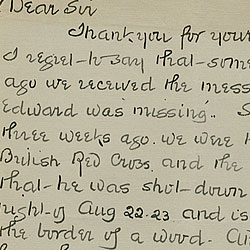 Dear Sir
Thank you for your
I regret to say that some
ago we received the mess
Edward was "missing". S
three weeks ago we were
British Red Cross, and the
that he was shot down
night of Aug 22-23 and is
the border of a wood. An